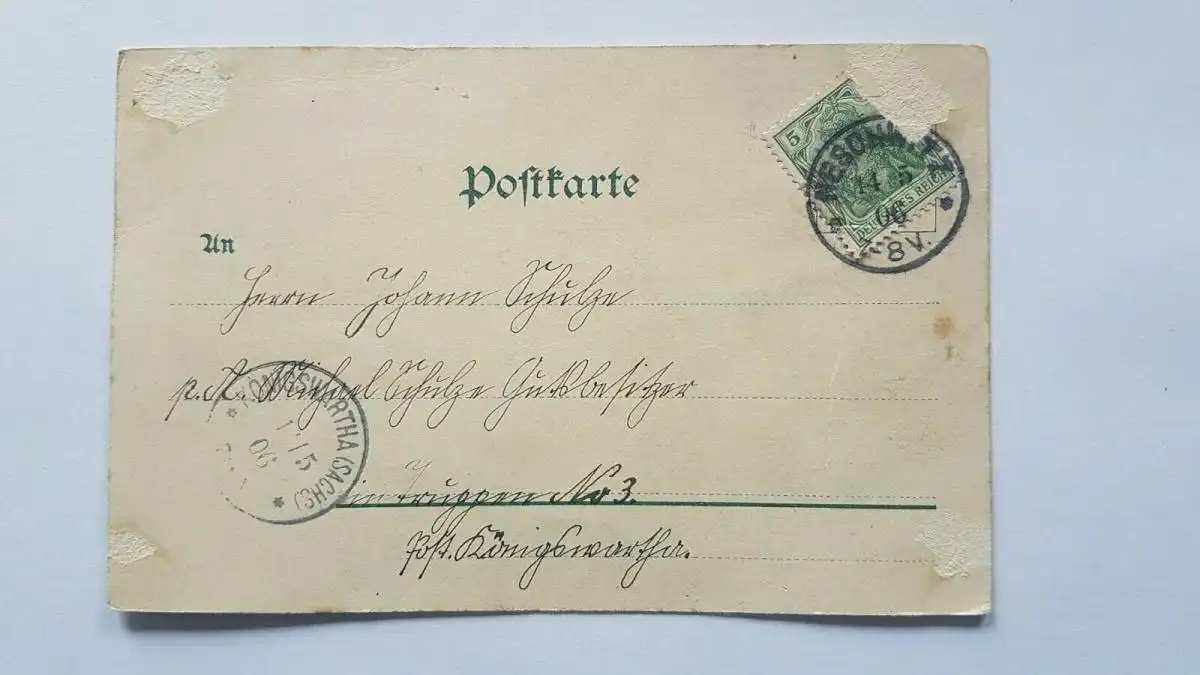 Postkarte
5
DEUTSCHES REICH
NESCHWITZ
14 5
06
8 V.
An
Herrn Johann Schulze
p. A. Michael Schulze Gutsbesitzer
KÖNIGSWARTHA (SACHS)
5
06
in Truppen No 3.
Post. Königswartha.